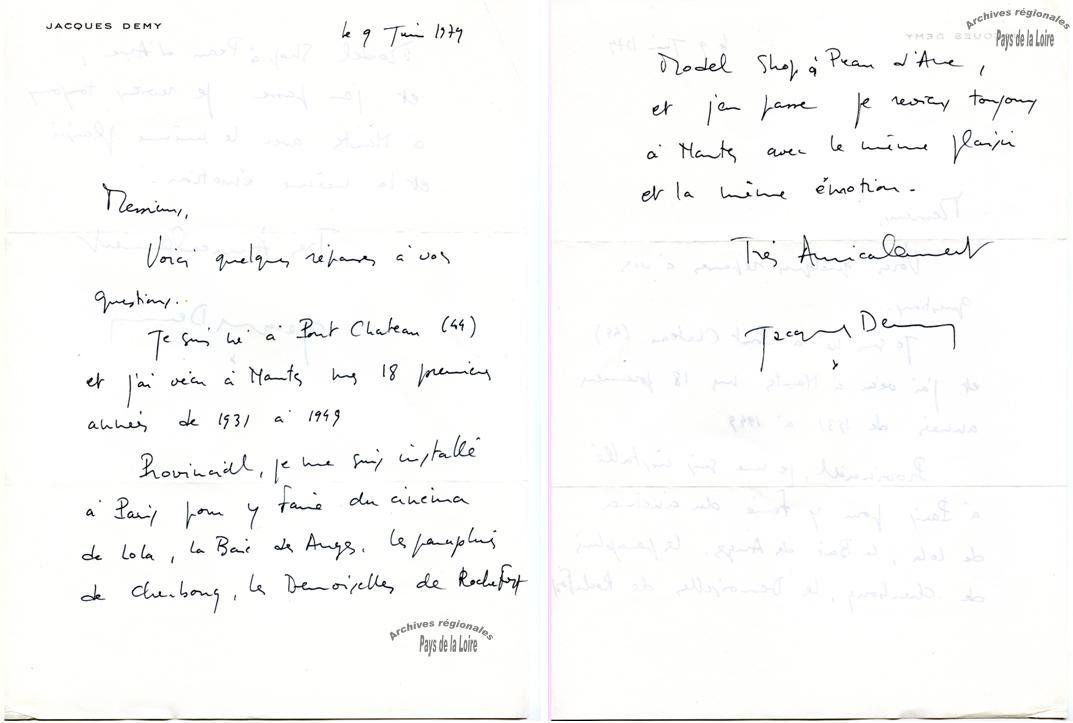 JACQUES DEMY
le 9 Juin 1979
Messieurs,
Voici quelques réponses à vos
questions..
Je suis né à Pont Chateau (44)
et j'ai vécu à Nantes mes 18 premières
années de 1931 à 1949
Provincial, je me suis installé
à Paris pour y faire du cinéma
de Lola, la Baie des Anges. les parapluies
de Cherbourg, les Demoiselles de Rochefort
Archives régionales
Pays de la Loire
Archives régionales
Pays de la Loire
Model Shop à Peau d'Ane,
et j'en passe je reviens toujours
à Nantes avec le même plaisir
et la même émotion.
Très Amicalement
Jacques Demy